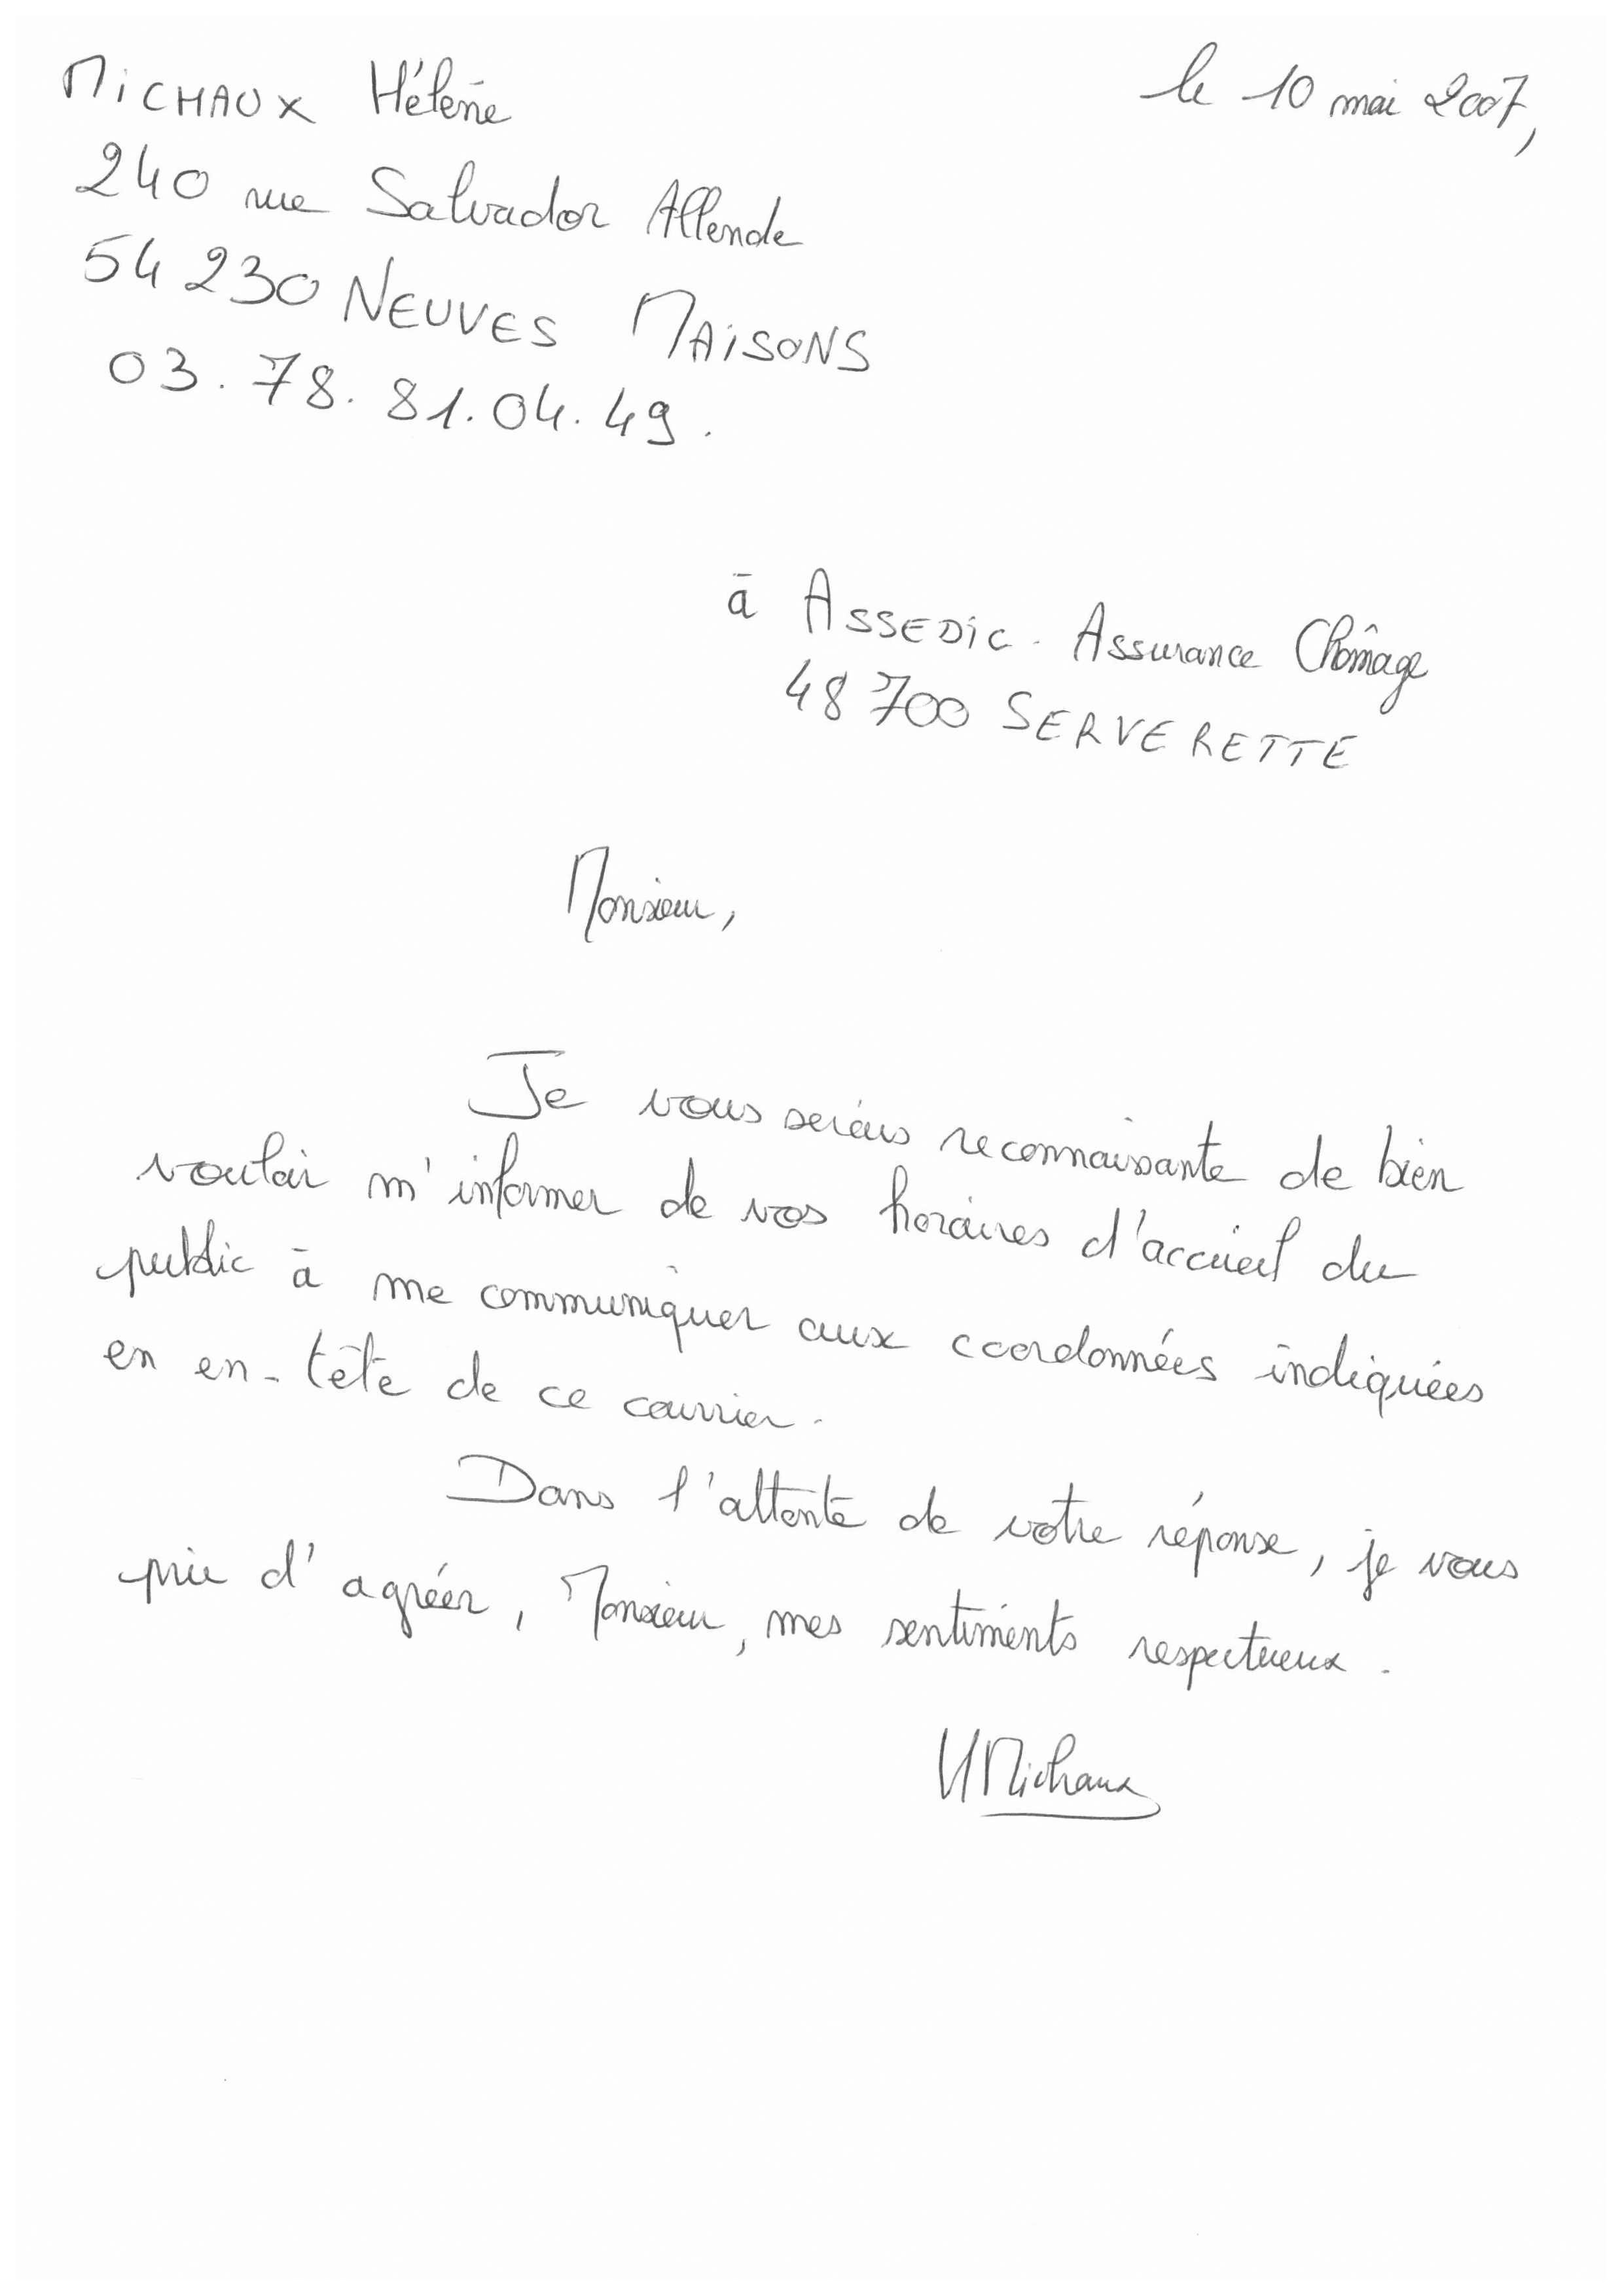 MICHAUX Hélène
le 10 mai 2007,
240 rue Salvador Allende
54 230 NEUVES MAISONS
03. 78. 81. 04. 49.
à ASSEDIC - Assurance Chômage
48 700 SERVERETTE
Monsieur,
Je vous serais reconnaissante de bien
vouloir m'informer de vos horaires d'accueil du
public à me communiquer aux coordonnées indiquées
en en-tête de ce courrier.
Dans l'attente de votre réponse, je vous
prie d'agréer, Monsieur, mes sentiments respectueux.
HMichaux